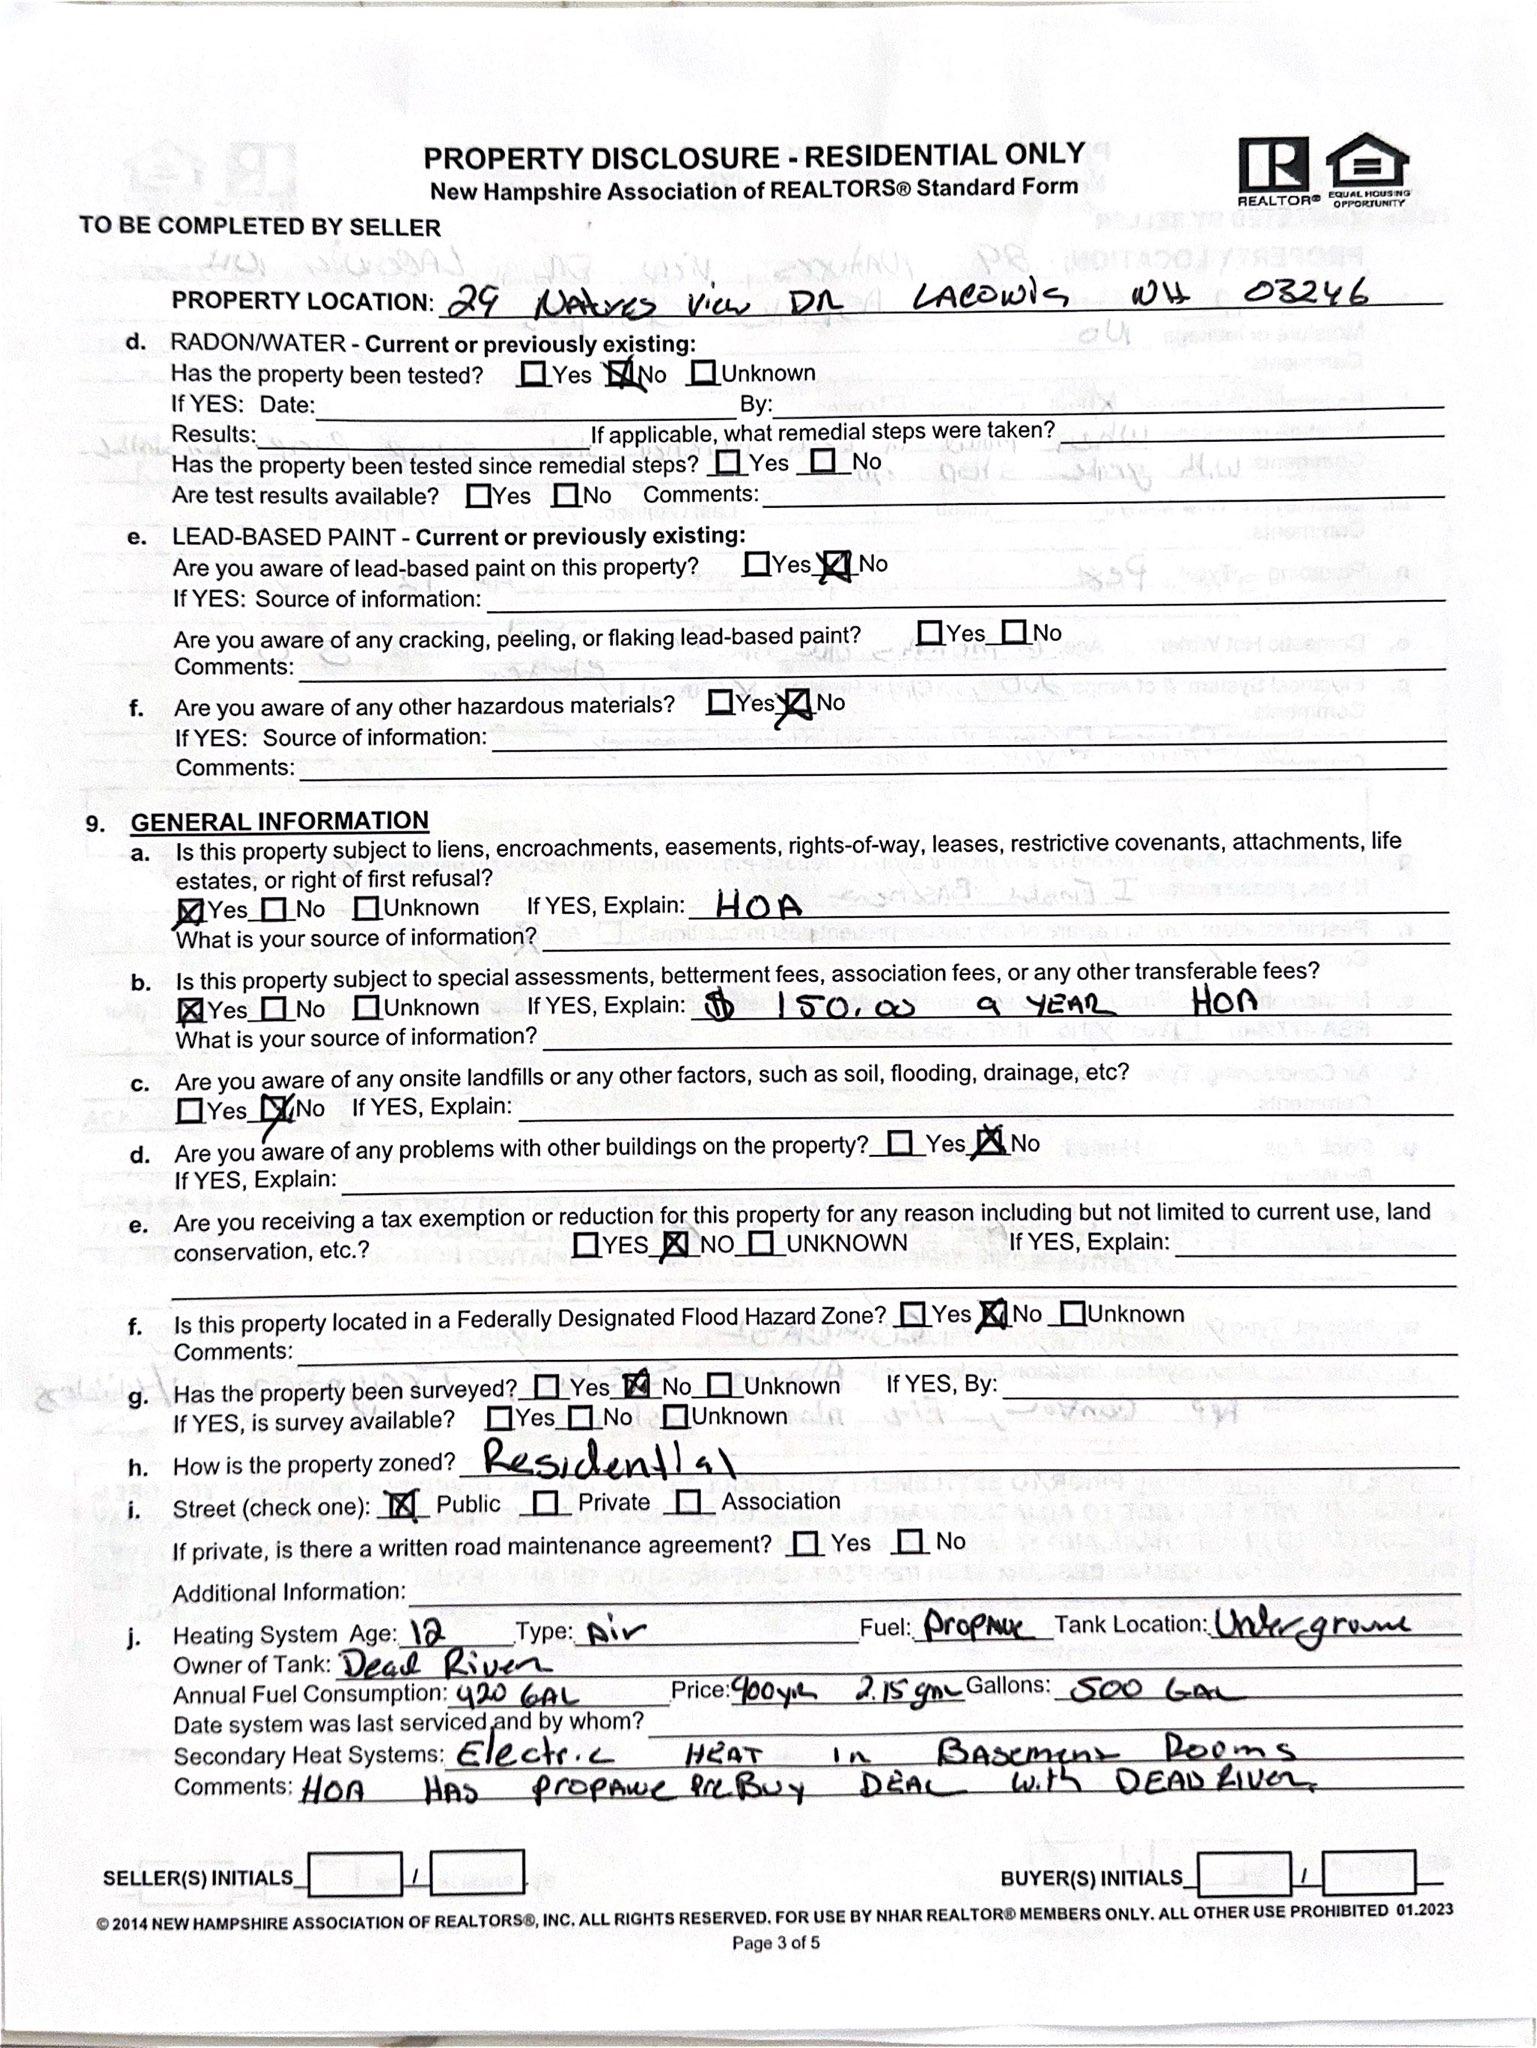 PROPERTY DISCLOSURE - RESIDENTIAL ONLY
New Hampshire Association of REALTORS® Standard Form
REALTOR®
EQUAL HOUSING OPPORTUNITY
TO BE COMPLETED BY SELLER
PROPERTY LOCATION: 29 Natures View DR LACONIA NH 03246
d. RADON/WATER - Current or previously existing:
Has the property been tested? ☐ Yes ☒ No ☐ Unknown
If YES: Date: By:
Results: If applicable, what remedial steps were taken?
Has the property been tested since remedial steps? ☐ Yes ☐ No
Are test results available? ☐ Yes ☐ No Comments:
e. LEAD-BASED PAINT - Current or previously existing:
Are you aware of lead-based paint on this property? ☐ Yes ☒ No
If YES: Source of information:
Are you aware of any cracking, peeling, or flaking lead-based paint? ☐ Yes ☐ No
Comments:
f. Are you aware of any other hazardous materials? ☐ Yes ☒ No
If YES: Source of information:
Comments:
9. GENERAL INFORMATION
a. Is this property subject to liens, encroachments, easements, rights-of-way, leases, restrictive covenants, attachments, life
estates, or right of first refusal?
☒ Yes ☐ No ☐ Unknown If YES, Explain: HOA
What is your source of information?
b. Is this property subject to special assessments, betterment fees, association fees, or any other transferable fees?
☒ Yes ☐ No ☐ Unknown If YES, Explain: $ 150.00 a YEAR HOA
What is your source of information?
c. Are you aware of any onsite landfills or any other factors, such as soil, flooding, drainage, etc?
☐ Yes ☒ No If YES, Explain:
d. Are you aware of any problems with other buildings on the property? ☐ Yes ☒ No
If YES, Explain:
e. Are you receiving a tax exemption or reduction for this property for any reason including but not limited to current use, land
conservation, etc.? ☐ YES ☒ NO ☐ UNKNOWN If YES, Explain:
f. Is this property located in a Federally Designated Flood Hazard Zone? ☐ Yes ☒ No ☐ Unknown
Comments:
g. Has the property been surveyed? ☐ Yes ☒ No ☐ Unknown If YES, By:
If YES, is survey available? ☐ Yes ☐ No ☐ Unknown
h. How is the property zoned? Residential
i. Street (check one): ☒ Public ☐ Private ☐ Association
If private, is there a written road maintenance agreement? ☐ Yes ☐ No
Additional Information:
j. Heating System Age: 12 Type: Air Fuel: Propane Tank Location: Underground
Owner of Tank: Dead River
Annual Fuel Consumption: 420 GAL Price: 900 yr 2.15 gal Gallons: 500 GAL
Date system was last serviced and by whom?
Secondary Heat Systems: Electric HEAT in Basement Rooms
Comments: HOA HAS PROPANE PreBuy DEAL with DEAD RIVER.
SELLER(S) INITIALS / BUYER(S) INITIALS /
© 2014 NEW HAMPSHIRE ASSOCIATION OF REALTORS®, INC. ALL RIGHTS RESERVED. FOR USE BY NHAR REALTOR® MEMBERS ONLY. ALL OTHER USE PROHIBITED 01.2023
Page 3 of 5